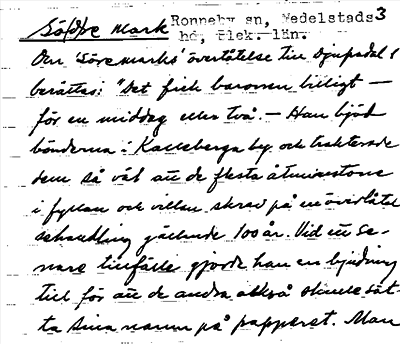 Sö(d)re Mark Ronneby sn, Medelstads 3
hd, Blek. län.
Om "Söremarks" överlåtelse till Djupadal
berättas: "Det fick baronen billigt —
för en middag eller två. — Han bjöd
bönderna i Kalleberga by och trakterade
dem så väl att de flesta åtminstone
i fyllan och villan skrev på en överlåtel
sehandling gällande 100 år. Vid ett se-
nare tillfälle gjorde han en bjudning
till för att de andra också skulle sät-
ta sina namn på papperet. Man